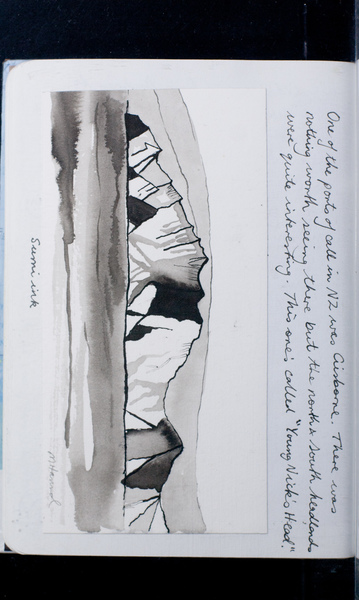 One of the ports of call in NZ was Gisborne. There was
nothing worth seeing there but the north & south headlands
were quite interesting. This one's called "Young Nicks Head".
Sumi ink